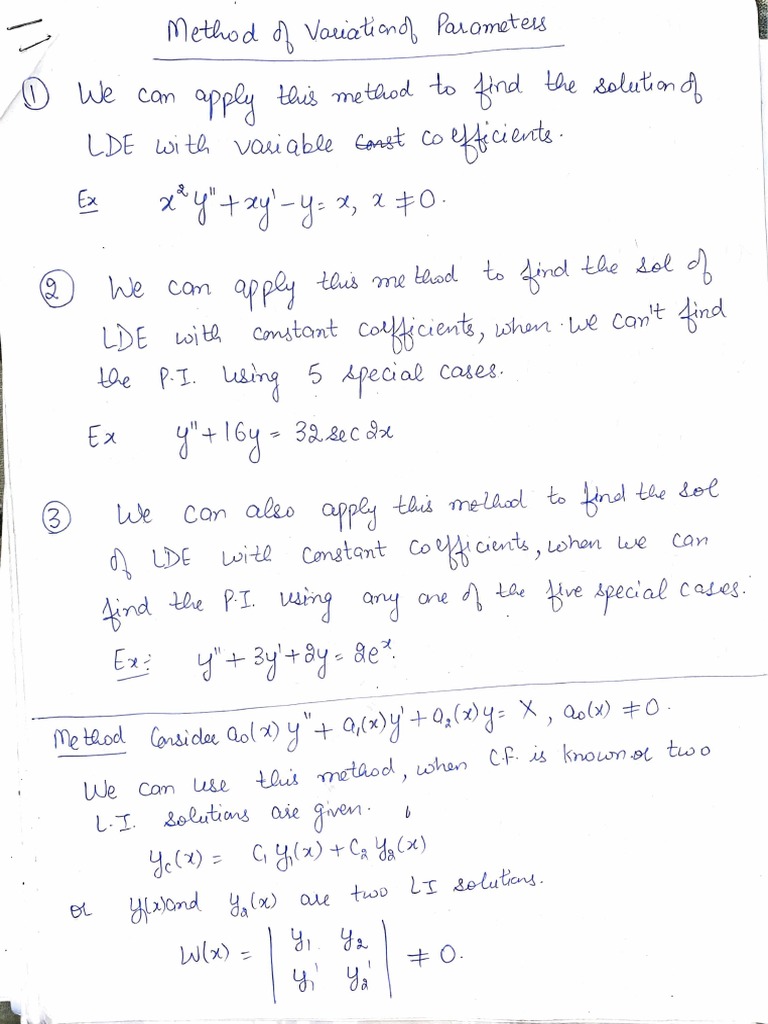 Method of Variation of Parameters
① We can apply this method to find the solution of
LDE with variable ~~const~~ coefficients.
Ex x² y'' + xy' - y = x, x ≠ 0.
② We can apply this method to find the sol of
LDE with constant coefficients, when we can't find
the P.I. using 5 special cases.
Ex y'' + 16y = 32 sec 2x
③ We can also apply this method to find the sol
of LDE with constant coefficients, when we can
find the P.I. using any one of the five special cases.
Ex: y'' + 3y' + 2y = 2eˣ.
Method Consider a₀(x) y'' + a₁(x)y' + a₂(x)y = X, a₀(x) ≠ 0.
We can use this method, when C.F. is known or two
L.I. solutions are given.
y_c(x) = C₁ y₁(x) + C₂ y₂(x)
or y₁(x) and y₂(x) are two LI solutions.
W(x) = | y₁ y₂ | ≠ 0.
| y₁' y₂' |